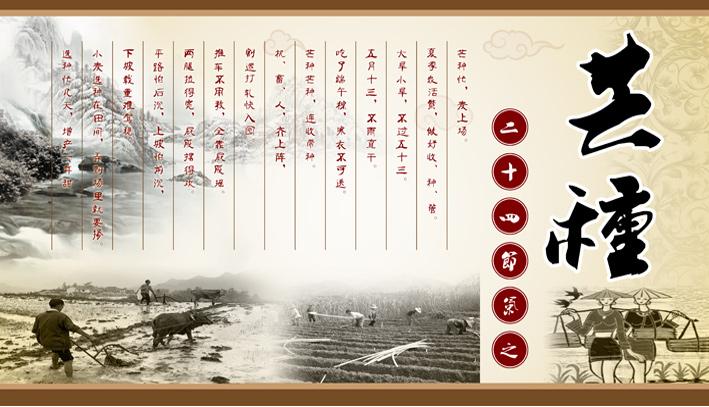 芒種
二十四節氣之
芒种忙,麦上场。
夏季农活繁,做好收、种、管。
大旱小旱,不过五十三。
五月十三,不雨直干。
吃了端午粽,寒衣不可送。
芒种芒种,连收带种。
机、畜、人,齐上阵,
割运打轧快入囤
推车不用教,全靠屁股摇。
两腿拉得宽,屁股摆得欢。
平路怕后沉,上坡怕前沉,
下坡载重难驾稳
小麦选种在田间,场里就要掺。
选种忙几天,增产一年甜